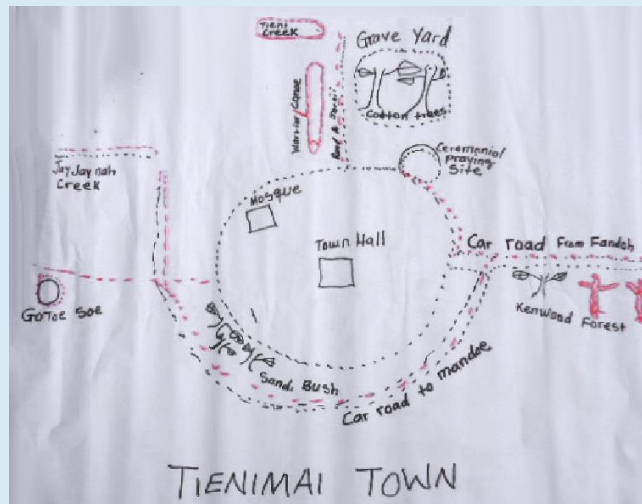 Tieni
Creek
Grave Yard
Warrior Canoe
Cotton trees
Ceremonial
Praying
Site
Jay Jaynah
Creek
Mosque
Town Hall
Car road From Fandoh
GoToe Soe
Kenwood Forest
Sand Bush
Car road to mandoe
TIENIMAI TOWN